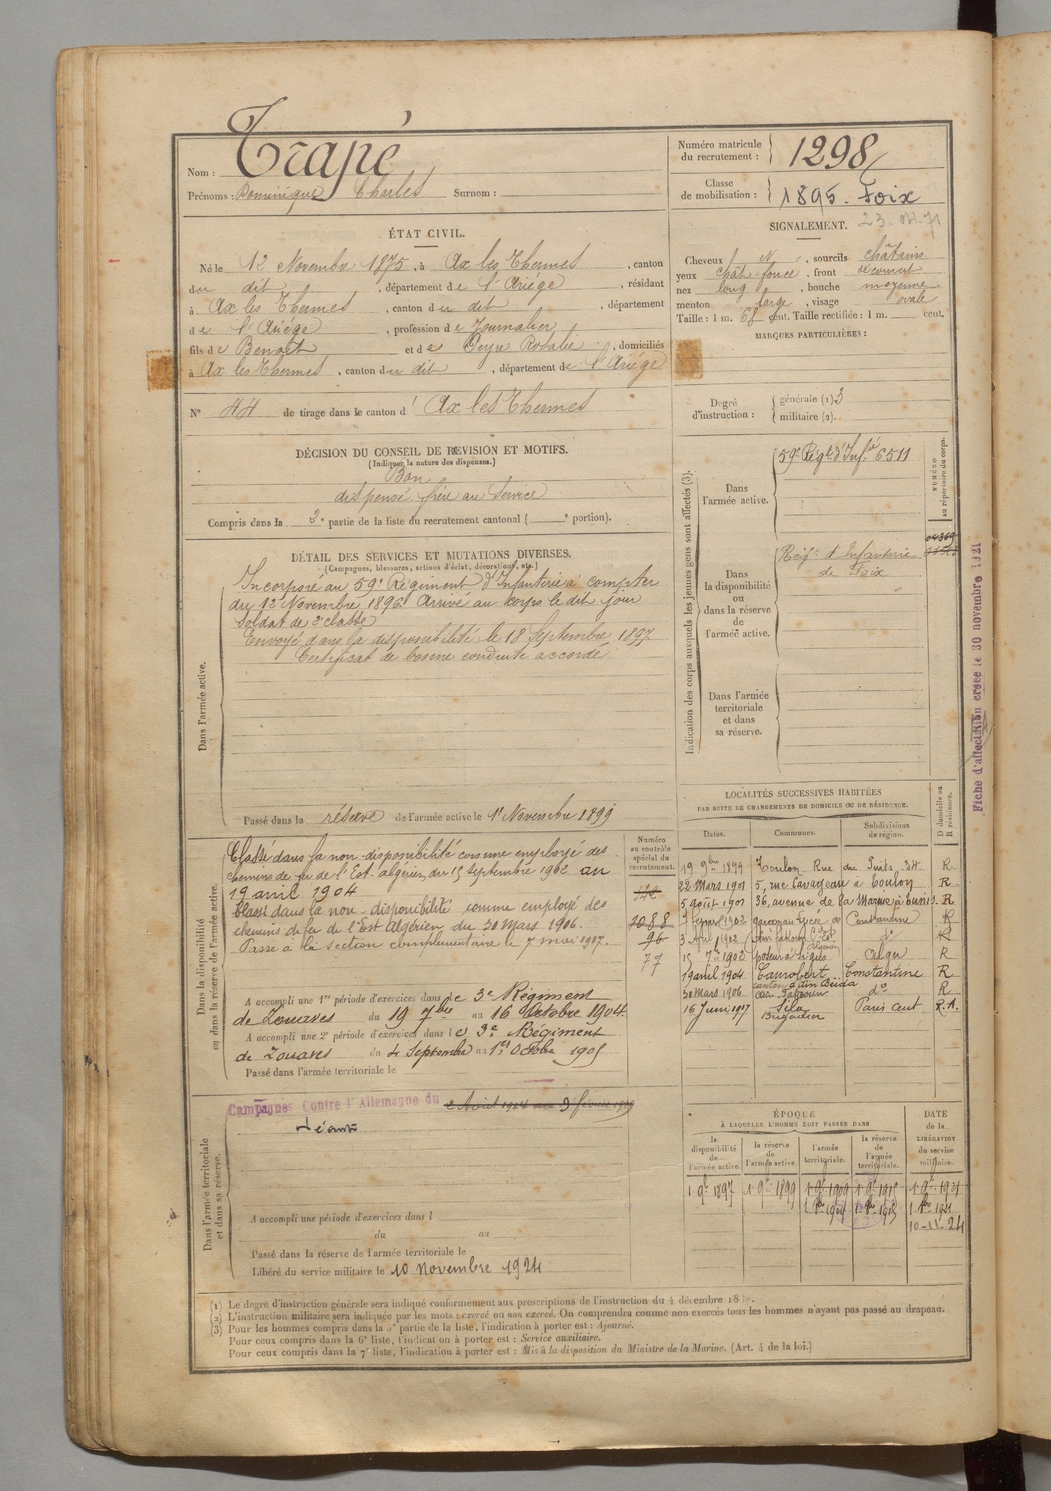 Nom : Trapé
Prénoms : Dominique Charles Surnom :
Numéro matricule du recrutement : 1298
Classe de mobilisation : 1895 - Foix
ÉTAT CIVIL.
Né le 12 Novembre 1875, à Ax les Thermes, canton
du dit, département de l'Ariége, résidant
à Ax les Thermes, canton du dit, département
de l'Ariége, profession de Journalier
fils de Benoît et de Peyre Rosalie, domiciliés
à Ax les Thermes, canton du dit, département de l'Ariége
N° 44 de tirage dans le canton d' Ax les Thermes
SIGNALEMENT.
Cheveux N, sourcils châtains
yeux chât foncé, front découvert
nez long, bouche moyenne
menton large, visage ovale
Taille : 1 m. 68 cent. Taille rectifiée : 1 m. cent.
MARQUES PARTICULIÈRES :
Degré d'instruction : générale (1) 3
militaire (2).
DÉCISION DU CONSEIL DE REVISION ET MOTIFS.
(Indiquer la nature des dispenses.)
Bon
dispensé frère au service
Compris dans la 2e partie de la liste du recrutement cantonal ( e portion).
DÉTAIL DES SERVICES ET MUTATIONS DIVERSES.
(Campagnes, blessures, actions d'éclat, décorations, etc.)
Dans l'armée active.
Incorporé au 59e Régiment d'Infanterie à compter
du 12 Novembre 1896. Arrivé au corps le dit jour
soldat de 2e classe
Envoyé dans la disponibilité le 18 Septembre 1897
Certificat de bonne conduite accordé
Passé dans la réserve de l'armée active le 1er Novembre 1899
Indication des corps auxquels les jeunes gens sont affectés (3).
NUMÉRO au répertoire du corps.
Dans l'armée active.
59e Régt d'Infie 6511
Dans la disponibilité ou dans la réserve de l'armée active.
Régt d'Infanterie
de Foix
Dans l'armée territoriale et dans sa réserve.
Fiche d'affectation créée le 30 novembre 1921
Dans la disponibilité ou dans la réserve de l'armée active.
Classé dans la non-disponibilité comme employé des
chemins de fer de l'Est algérien du 15 septembre 1902 au
19 avril 1904
Classé dans la non-disponibilité comme employé des
chemins de fer de l'Est Algérien du 30 Mars 1906.
Passé à la section complémentaire le 7 mai 1917.
A accompli une 1re période d'exercices dans le 3e Régiment
de Zouaves du 19 7bre au 16 Octobre 1904
A accompli une 2e période d'exercices dans le 3e Régiment
de Zouaves du 4 Septembre au 1er Octobre 1905
Passé dans l'armée territoriale le
Numéro au contrôle spécial du recrutement.
2088
96
77
LOCALITÉS SUCCESSIVES HABITÉES
PAR SUITE DE CHANGEMENTS DE DOMICILE OU DE RÉSIDENCE.
Dates. Communes. Subdivisions de région. D domicile ou R résidence.
19 9bre 1899 Toulon. Rue du Puits. 34. R
22 Mars 1901 5, rue Cavaignau à Toulon R
5 août 1901 36, avenue de la Marine à Tunis R
1902 Lycée de Constantine R
3 Avril 1902 do R
15 7bre 1902 Alger R
19 avril 1904 Canrobert Constantine R
30 Mars 1906 canton d'Aïn Beïda Aïn Fakroun do R
16 Juin 1917 Sila Brigadier Paris cent R.A.
Dans l'armée territoriale et dans sa réserve.
Campagnes Contre l'Allemagne du 2 Août 1914 au 3 février 1919
Néant
A accompli une période d'exercices dans l
du au
Passé dans la réserve de l'armée territoriale le
Libéré du service militaire le 10 novembre 1924
ÉPOQUE
À LAQUELLE L'HOMME DOIT PASSER DANS
la disponibilité de l'armée active. la réserve de l'armée active. l'armée territoriale. la réserve de l'armée territoriale. DATE de la LIBÉRATION du service militaire.
1 9e 1897 1 9e 1899 1 9e 1909 1 9e 1915 1 9e 1921
10-11-24
(1) Le degré d'instruction générale sera indiqué conformément aux prescriptions de l'instruction du 4 décembre
(2) L'instruction militaire sera indiquée par les mots : exercé ou non exercé. On comprendra comme non exercés tous les hommes n'ayant pas passé au drapeau.
(3) Pour les hommes compris dans la 5e partie de la liste, l'indication à porter est : Ajourné.
Pour ceux compris dans la 6e liste, l'indication à porter est : Service auxiliaire.
Pour ceux compris dans la 7e liste, l'indication à porter est : Mis à la disposition du Ministre de la Marine. (Art. 4 de la loi.)